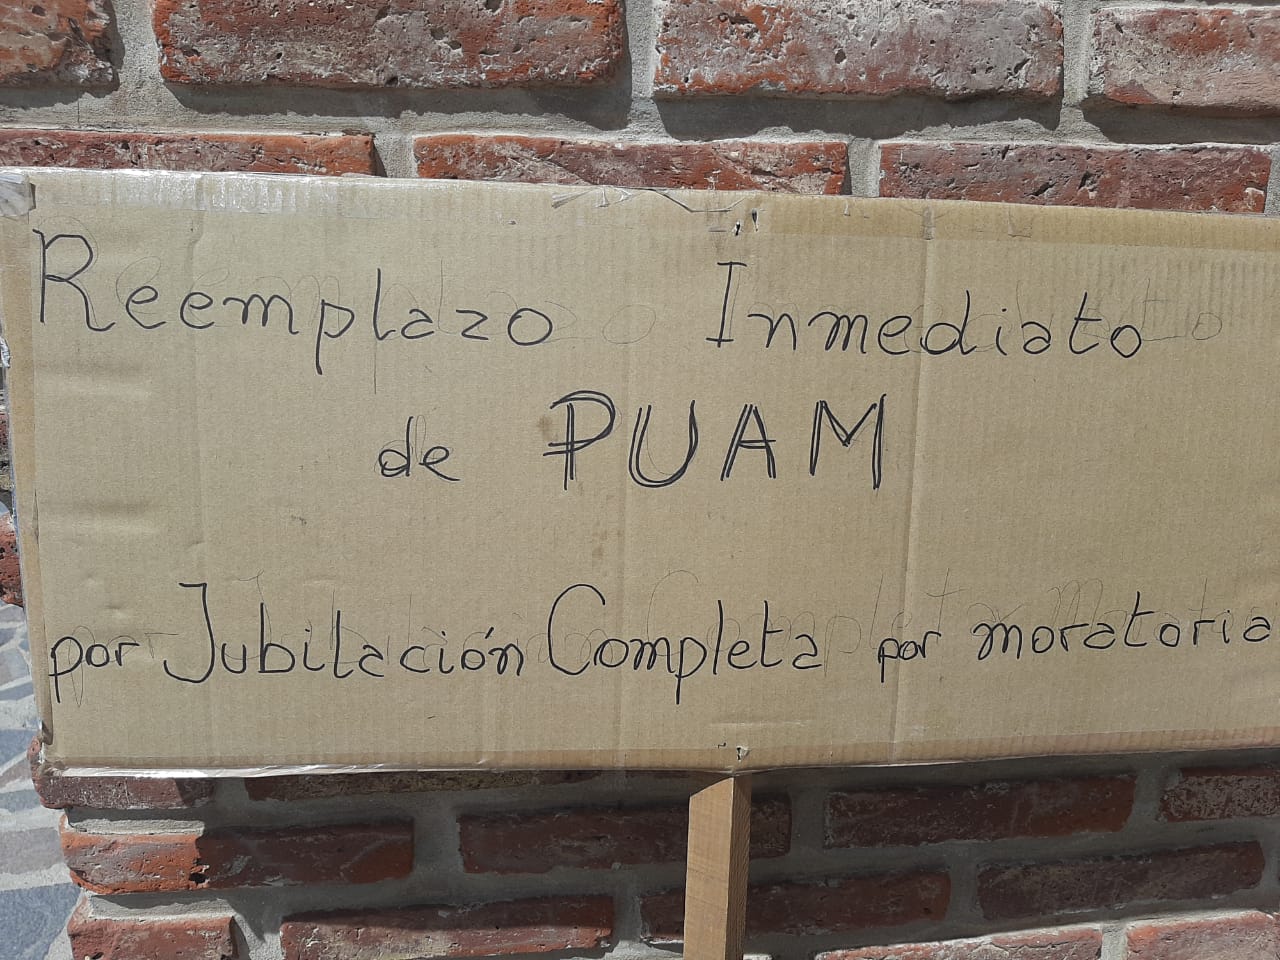 Reemplazo Inmediato
de PUAM
por Jubilación Completa por moratoria